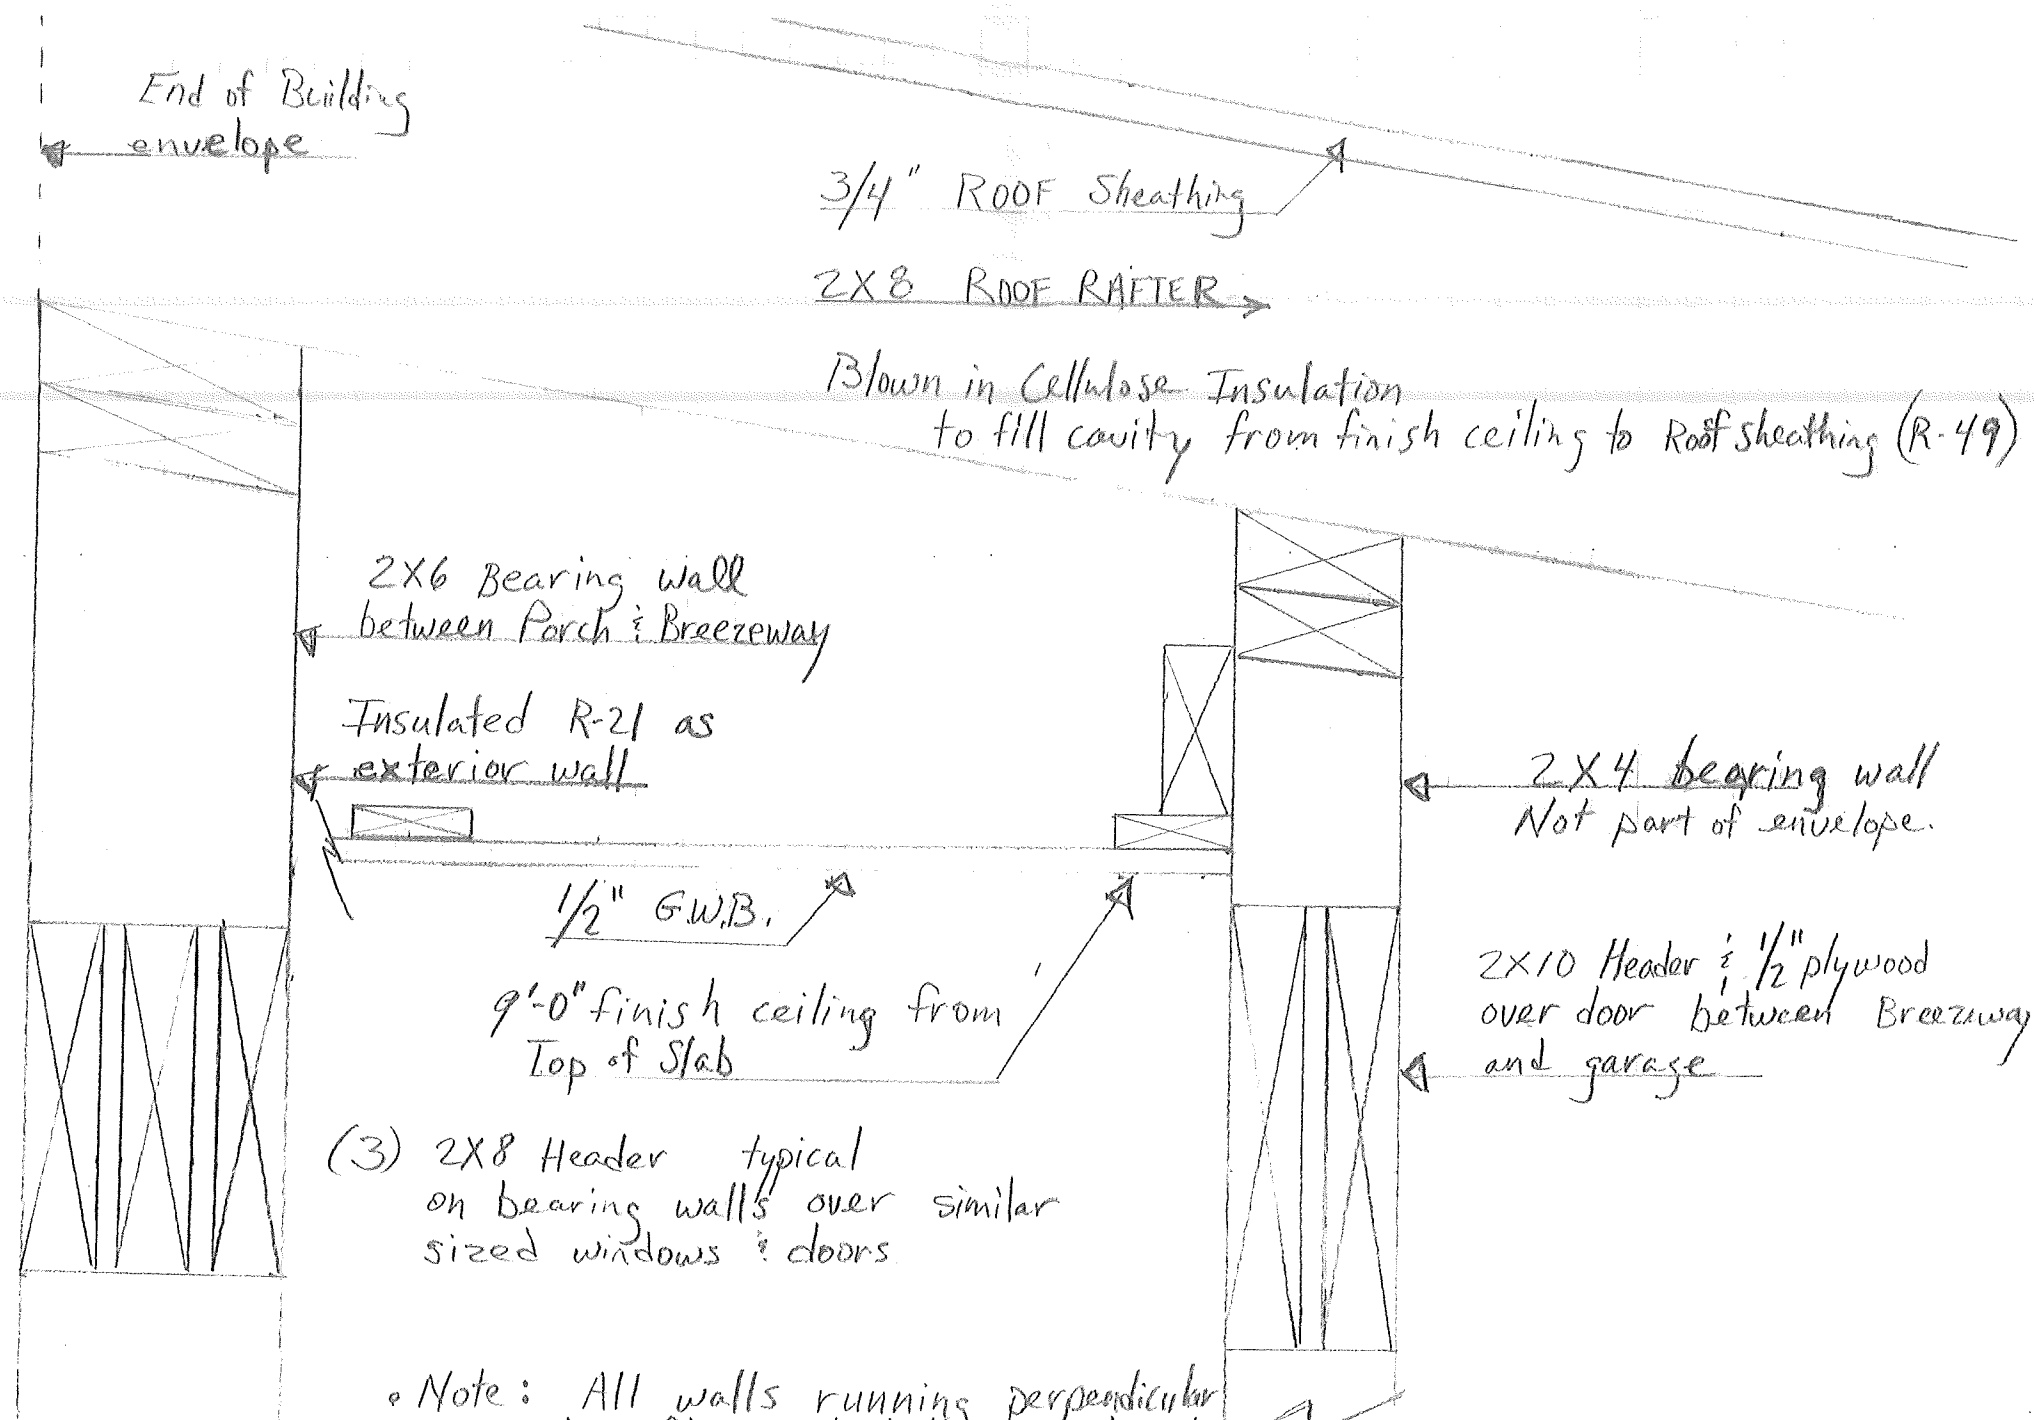 End of Building
envelope
3/4" ROOF Sheathing
2X8 ROOF RAFTER
Blown in Cellulose Insulation
to fill cavity from finish ceiling to Roof sheathing (R-49)
2X6 Bearing wall
between Porch & Breezeway
Insulated R-21 as
exterior wall
2X4 bearing wall
Not part of envelope.
1/2" G.W.B.
9'-0" finish ceiling from
Top of Slab
2X10 Header & 1/2" plywood
over door between Breezeway
and garage
(3) 2X8 Header typical
on bearing walls over similar
sized windows & doors
• Note: All walls running perpendicular